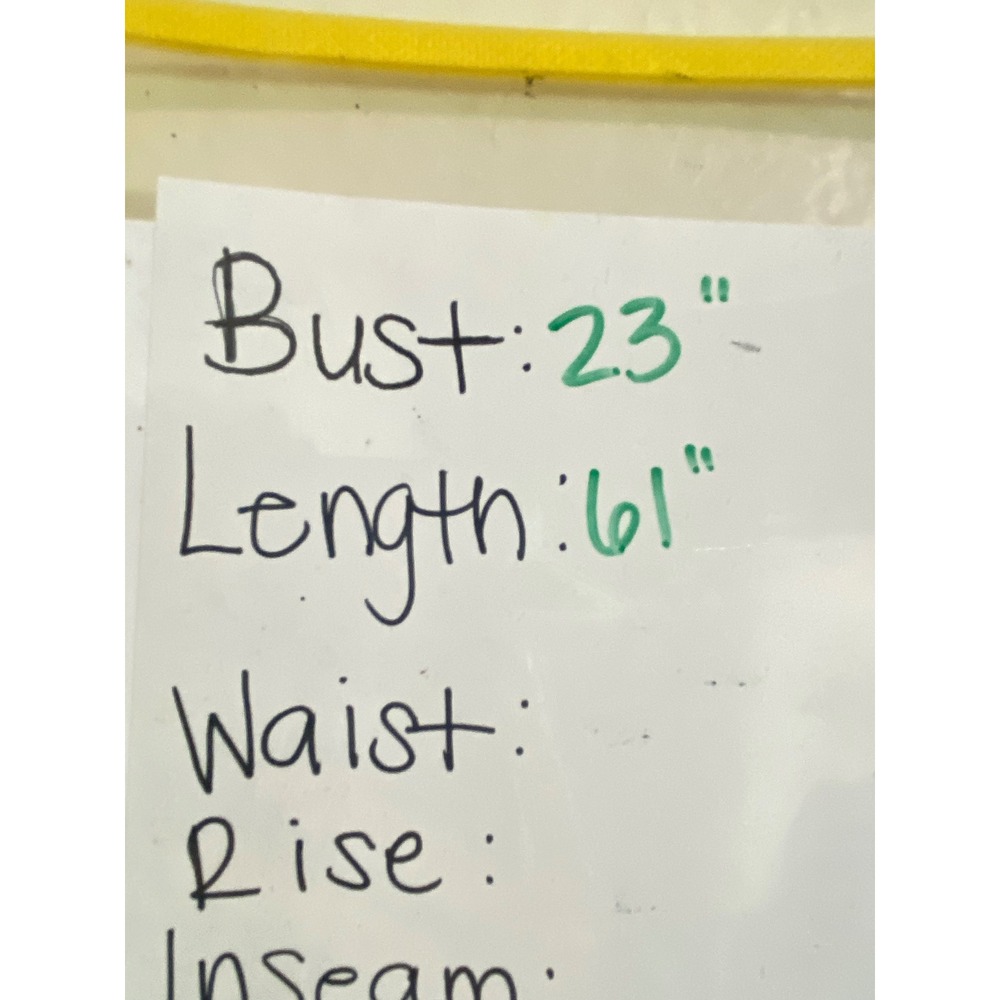 Bust: 23"
Length: 61"
Waist:
Rise:
Inseam: